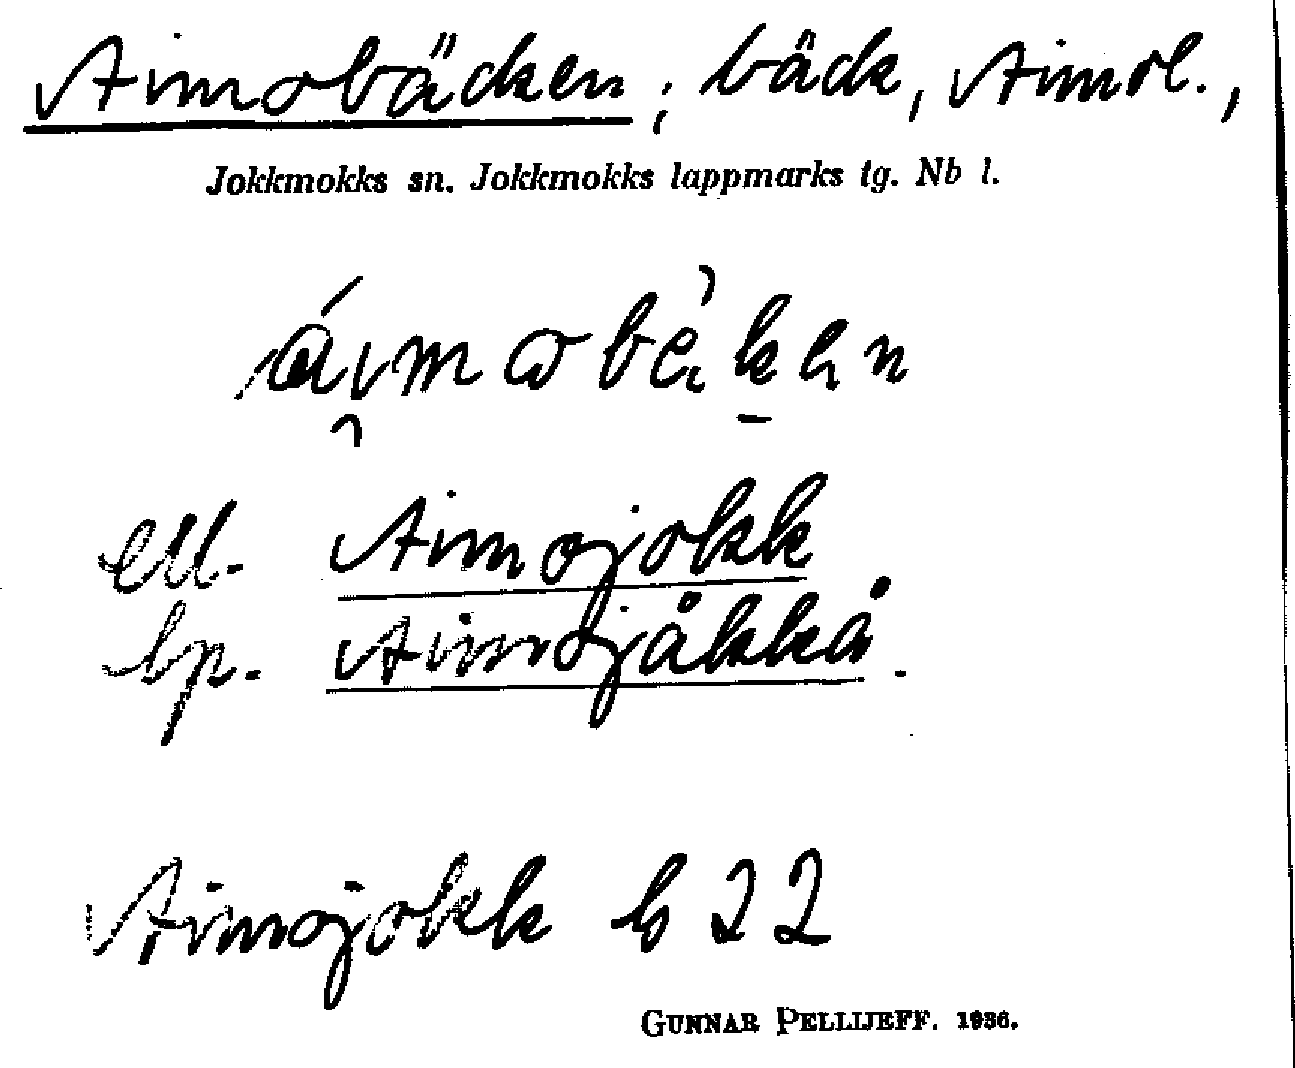 Aimobäcken; bäck, Aimol.,
Jokkmokks sn. Jokkmokks lappmarks tg. Nb l.
ell. Aimojokk
lp. Aimojåkkå.
Aimojokk b 22
GUNNAR PELLIJEFF. 1936.